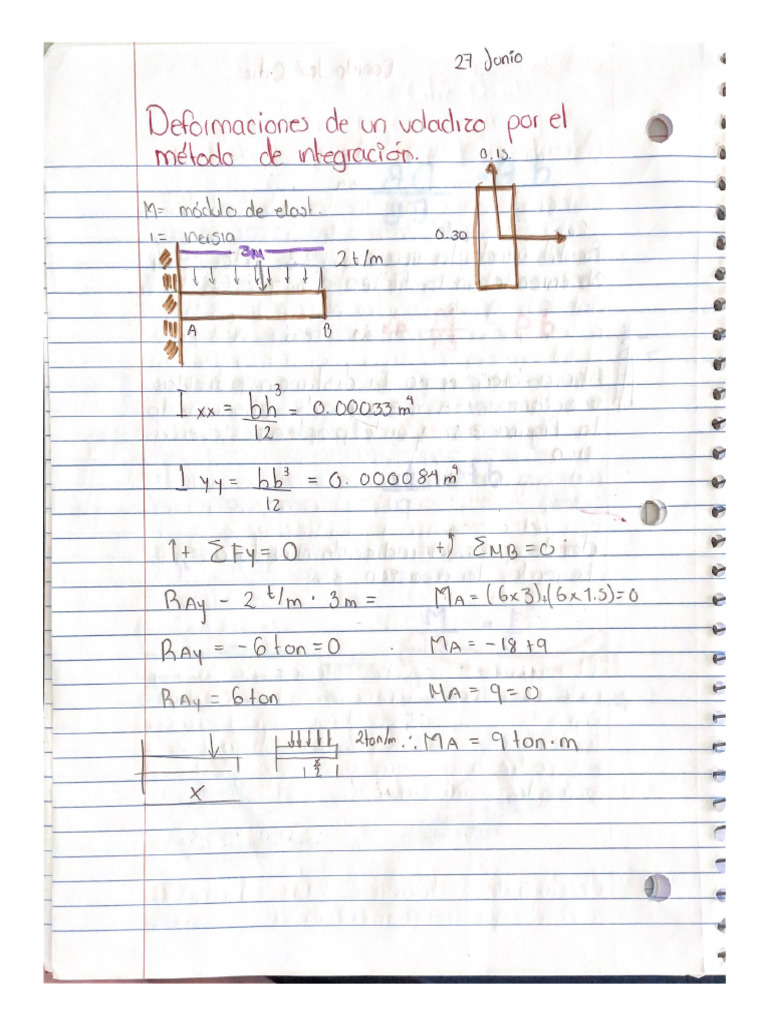 27 Junio
Deformaciones de un voladizo por el
método de integración.
0.15
M= módulo de elast.
I= inersia
0.30
3M
2t/m
A B
Ixx = bh³/12 = 0.00033m⁴
Iyy = hb³/12 = 0.000084m⁴
↑+ ΣFy=0 +) ΣMB=0
RAy - 2 t/m · 3m = MA=(6x3)+(6x1.5)=0
RAy = -6 ton=0 MA= -18+9
RAy = 6 ton MA= 9=0
2ton/m ∴ MA = 9 ton·m
x/2
X